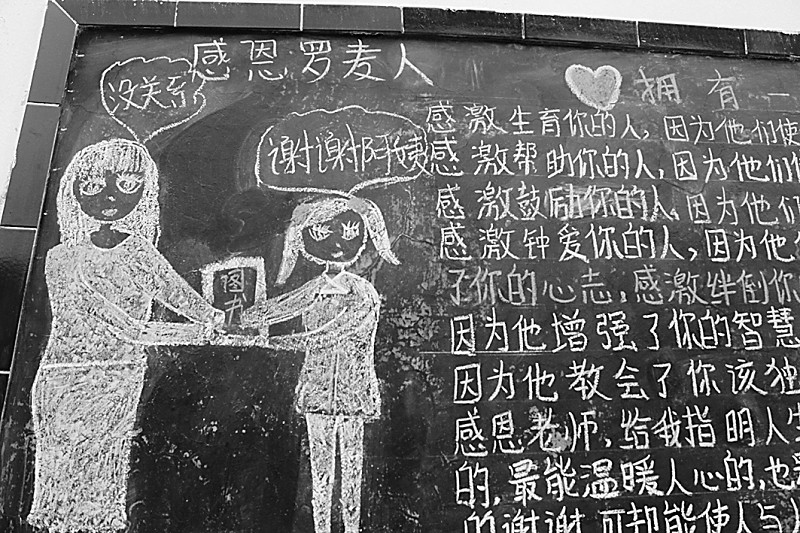 感恩罗麦人
没关系
谢谢阿姨
图书
拥有一
感激生育你的人，因为他们使
感激帮助你的人，因为他们
感激鼓励你的人，因为他们
感激钟爱你的人，因为他
了你的心志，感激绊倒你
因为他增强了你的智慧
因为他教会了你该独
感恩老师，给我指明人生
的，最能温暖人心的，也
的谢谢，可却能使人与人